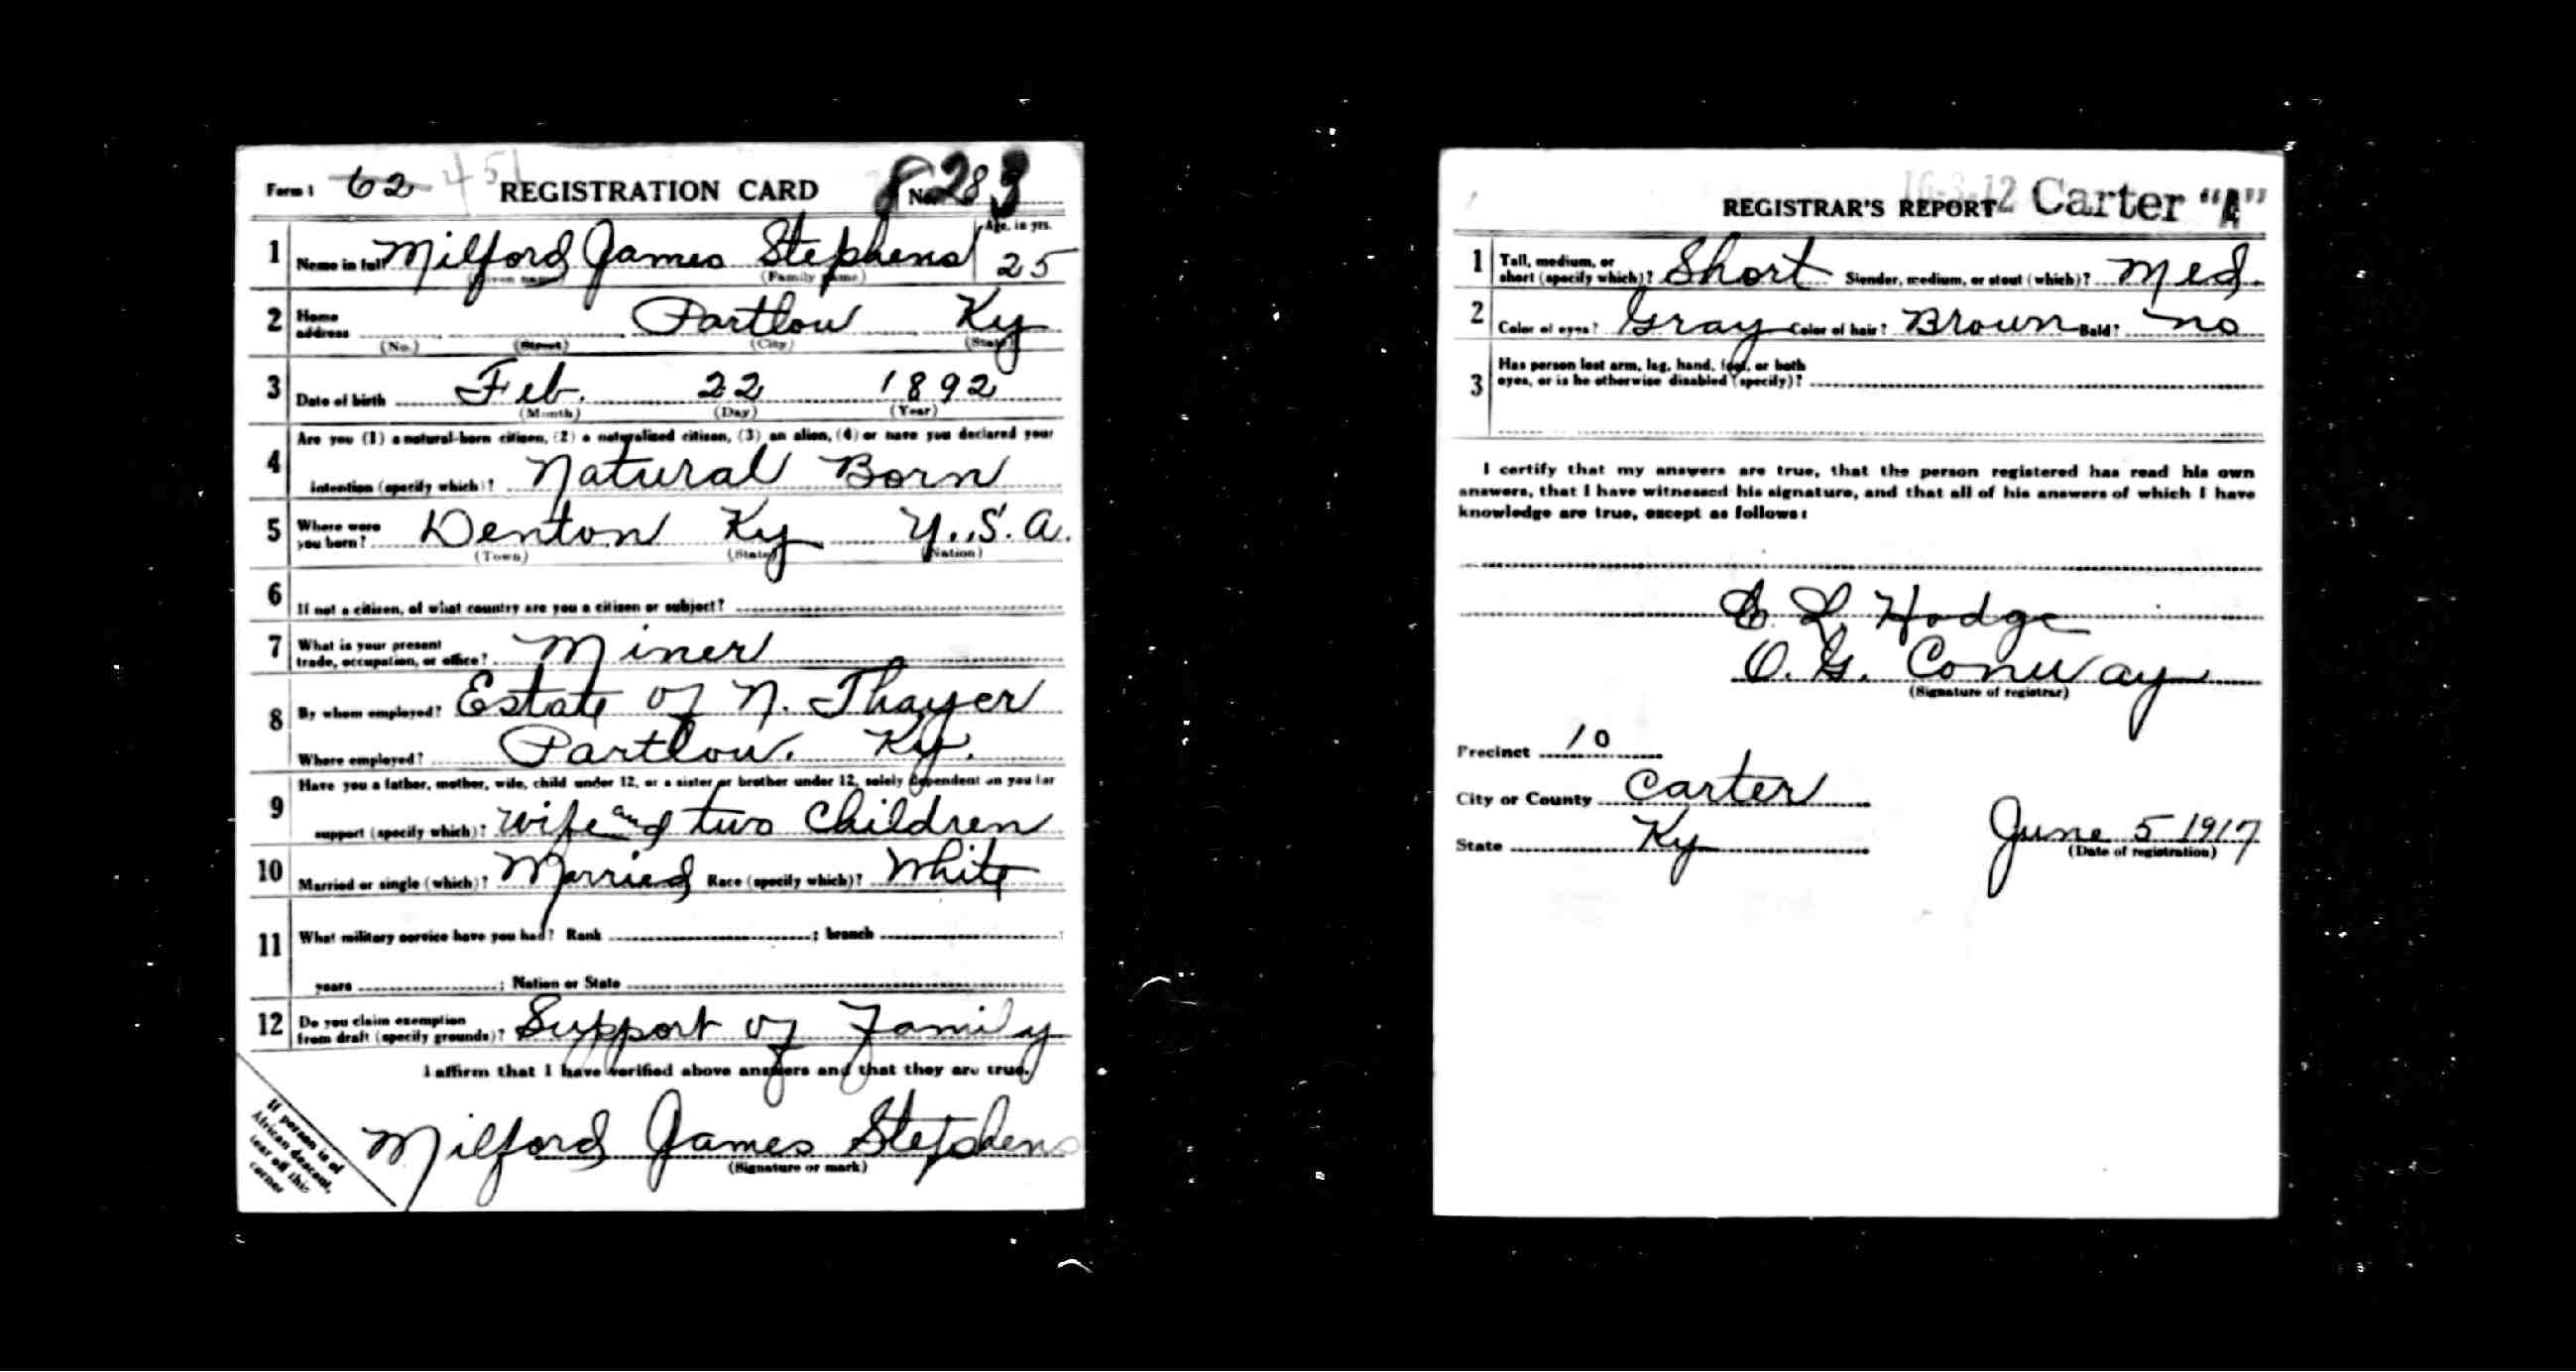 Form 1 62 REGISTRATION CARD No. 283
Age, in yrs.
1 Name in full Milford James Stephens 25
(Given name) (Family name)
2 Home address Partlow Ky
(No.) (Street) (City) (State)
3 Date of birth Feb. 22 1892
(Month) (Day) (Year)
Are you (1) a natural-born citizen, (2) a naturalized citizen, (3) an alien, (4) or have you declared your
4 intention (specify which)? Natural Born
5 Where were you born? Denton Ky U.S.A.
(Town) (State) (Nation)
6 If not a citizen, of what country are you a citizen or subject?
7 What is your present trade, occupation, or office? Miner
8 By whom employed? Estate of N. Thayer
Where employed? Partlow. Ky.
Have you a father, mother, wife, child under 12, or a sister or brother under 12, solely dependent on you for
9 support (specify which)? wife and two Children
10 Married or single (which)? Married Race (specify which)? White
11 What military service have you had? Rank ; branch
years ; Nation or State
12 Do you claim exemption from draft (specify grounds)? Support of Family
I affirm that I have verified above answers and that they are true.
Milford James Stephens
(Signature or mark)
If person is of
African descent,
tear off this
corner
REGISTRAR'S REPORT 16-3-12 Carter "A"
1 Tall, medium, or short (specify which)? Short Slender, medium, or stout (which)? Med.
2 Color of eyes? Gray Color of hair? Brown Bald? no
3 Has person lost arm, leg, hand, foot, or both
eyes, or is he otherwise disabled (specify)?
I certify that my answers are true, that the person registered has read his own
answers, that I have witnessed his signature, and that all of his answers of which I have
knowledge are true, except as follows:
E L Hodge
O. G. Conway
(Signature of registrar)
Precinct 10
City or County Carter
State Ky June 5 1917
(Date of registration)